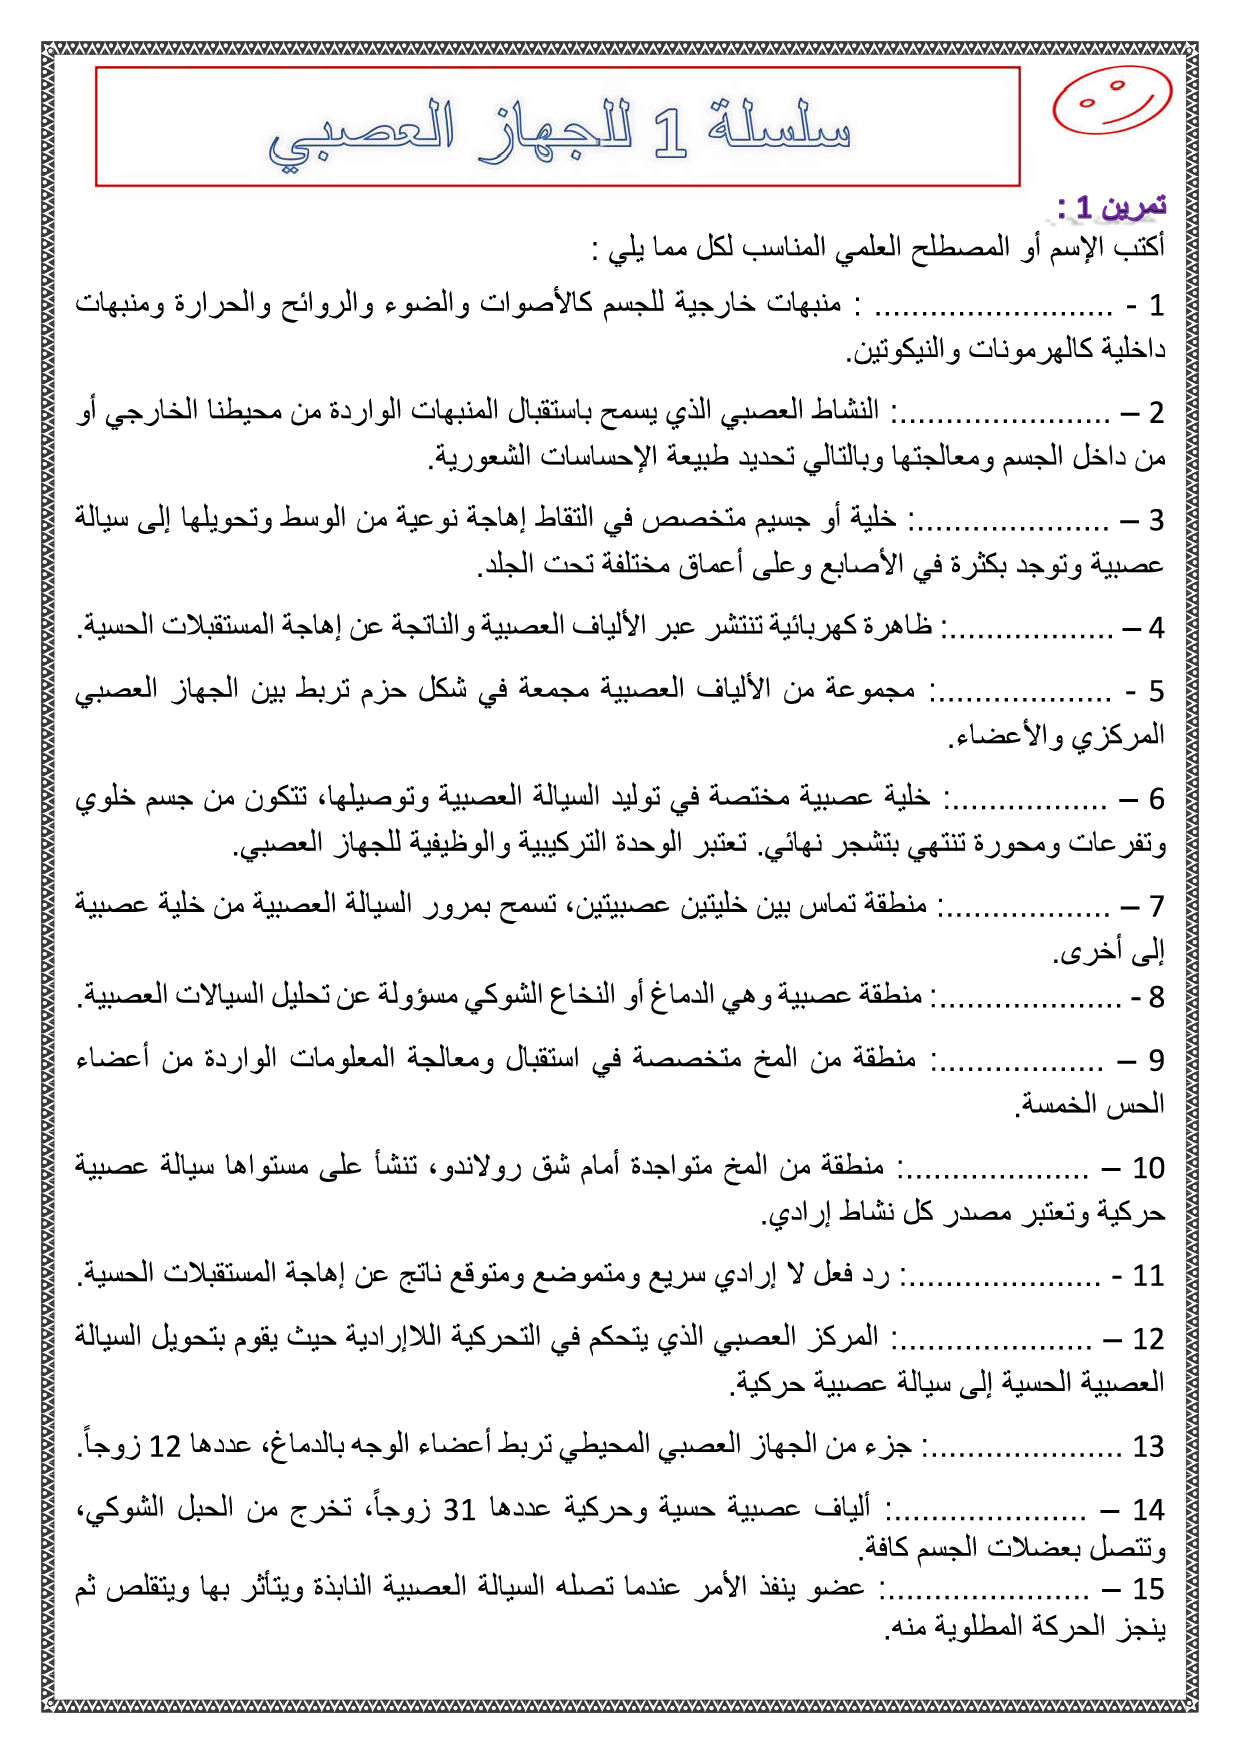 سلسلة 1 للجهاز العصبي
تمرين 1 :
أكتب الإسم أو المصطلح العلمي المناسب لكل مما يلي :
1 - .......................... : منبهات خارجية للجسم كالأصوات والضوء والروائح والحرارة ومنبهات
داخلية كالهرمونات والنيكوتين.
2 – .......................: النشاط العصبي الذي يسمح باستقبال المنبهات الواردة من محيطنا الخارجي أو
من داخل الجسم ومعالجتها وبالتالي تحديد طبيعة الإحساسات الشعورية.
3 – .....................: خلية أو جسيم متخصص في التقاط إهاجة نوعية من الوسط وتحويلها إلى سيالة
عصبية وتوجد بكثرة في الأصابع وعلى أعماق مختلفة تحت الجلد.
4 – ..................: ظاهرة كهربائية تنتشر عبر الألياف العصبية والناتجة عن إهاجة المستقبلات الحسية.
5 - ...................: مجموعة من الألياف العصبية مجمعة في شكل حزم تربط بين الجهاز العصبي
المركزي والأعضاء.
6 – .................: خلية عصبية مختصة في توليد السيالة العصبية وتوصيلها، تتكون من جسم خلوي
وتفرعات ومحورة تنتهي بتشجر نهائي. تعتبر الوحدة التركيبية والوظيفية للجهاز العصبي.
7 – ..................: منطقة تماس بين خليتين عصبيتين، تسمح بمرور السيالة العصبية من خلية عصبية
إلى أخرى.
8 - ....................: منطقة عصبية وهي الدماغ أو النخاع الشوكي مسؤولة عن تحليل السيالات العصبية.
9 – ..................: منطقة من المخ متخصصة في استقبال ومعالجة المعلومات الواردة من أعضاء
الحس الخمسة.
10 – ....................: منطقة من المخ متواجدة أمام شق رولاندو، تنشأ على مستواها سيالة عصبية
حركية وتعتبر مصدر كل نشاط إرادي.
11 - .....................: رد فعل لا إرادي سريع ومتموضع ومتوقع ناتج عن إهاجة المستقبلات الحسية.
12 – .....................: المركز العصبي الذي يتحكم في التحركية اللاإرادية حيث يقوم بتحويل السيالة
العصبية الحسية إلى سيالة عصبية حركية.
13 .....................: جزء من الجهاز العصبي المحيطي تربط أعضاء الوجه بالدماغ، عددها 12 زوجاً.
14 – .....................: ألياف عصبية حسية وحركية عددها 31 زوجاً، تخرج من الحبل الشوكي،
وتتصل بعضلات الجسم كافة.
15 – ......................: عضو ينفذ الأمر عندما تصله السيالة العصبية النابذة ويتأثر بها ويتقلص ثم
ينجز الحركة المطلوبة منه.